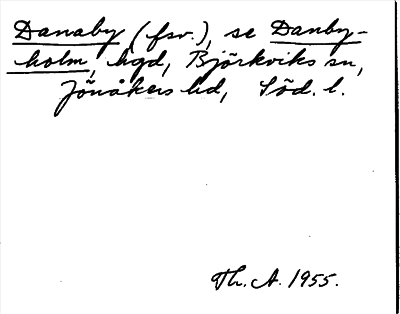 Danaby (fsv.), se Danby-
holm, hgd, Björkviks sn,
Jönåkers hd, Söd. l.
Th. A. 1955.